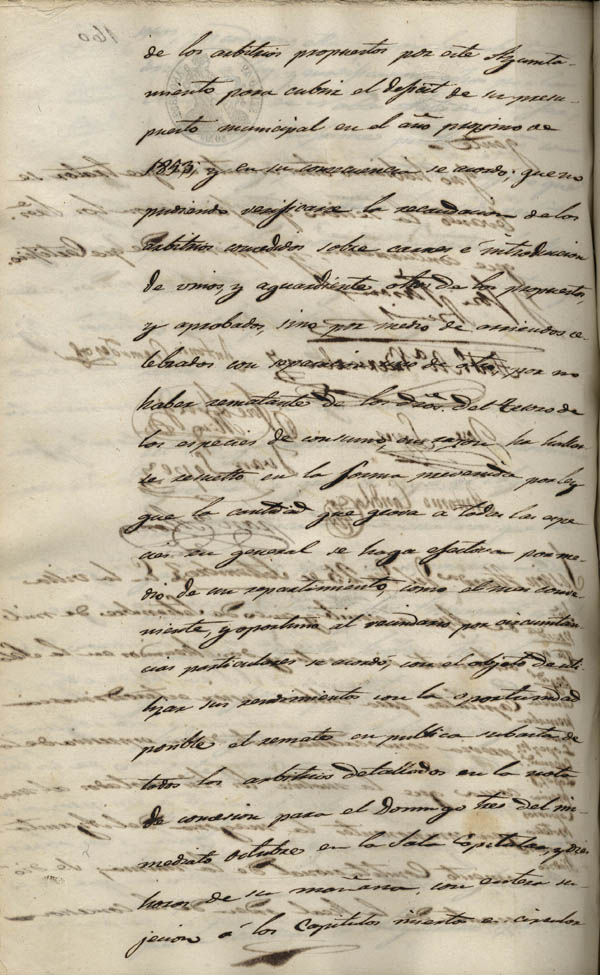 160
de los arbitrios propuestos por este Ayunta-
miento para cubrir el deficit de su presu-
puesto municipal en el año proximo de
1853; y en su consecuencia se acordó; que no
pudiendo verificarse la recaudacion de los
arbitrios concedidos sobre carnes é introduccion
de vinos, y aguardiente, otros de los propuestos,
y aprobados, sino por medio de arriendos ce-
lebrados con separacion por no
haber rematante de los dros. del tesoro de
las especies de consumo, cuya ha halla-
se resuelto en la forma prevenida por ley
que la cantidad que grava a todas las espe-
cies en general se haga efectiva por me-
dio de un repartimiento, como el mas conve-
niente, y oportuno al vecindario por circunstan-
cias particulares se acordó, con el objeto de uti-
lizar sus rendimientos con la oportunidad
posible el remate en publica subasta de
todos los arbitrios detallados en la nota
de concesion para el Domingo tres del in-
mediato Octubre en la Sala Capitular, y diez
horas de su mañana, con entera su-
jecion á los Capitulos insertos en circular